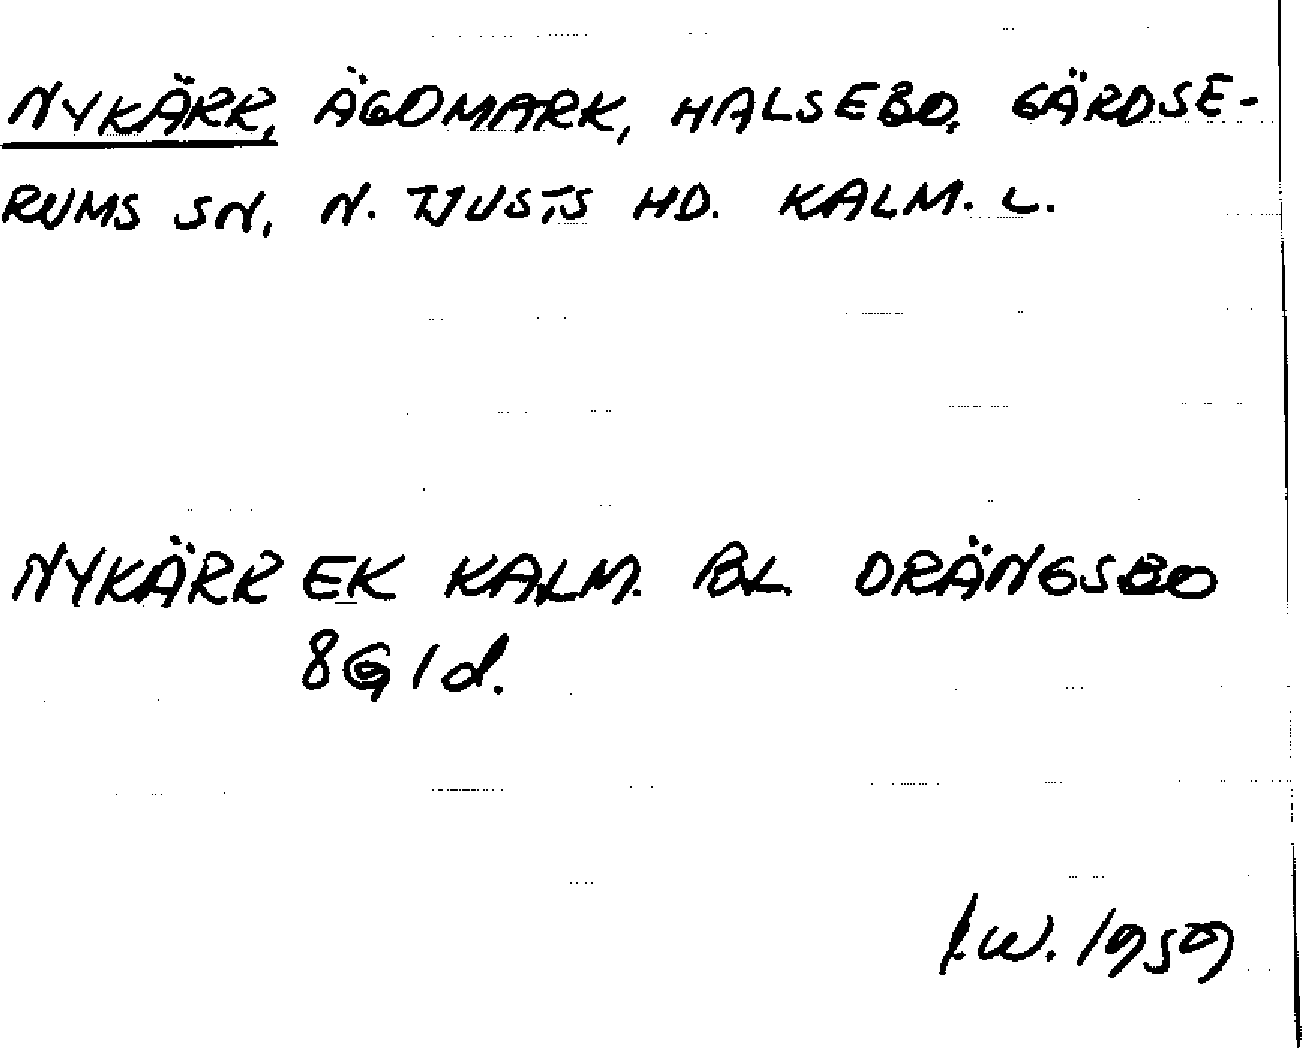 NYKÄRR, ÄGOMARK, HALSEBO, GÄRDSE-
RUMS SN, N. TJUSTS HD. KALM. L.
NYKÄRR EK KALM. BL DRÄNGSBO
8G 1d.
I.W. 1959